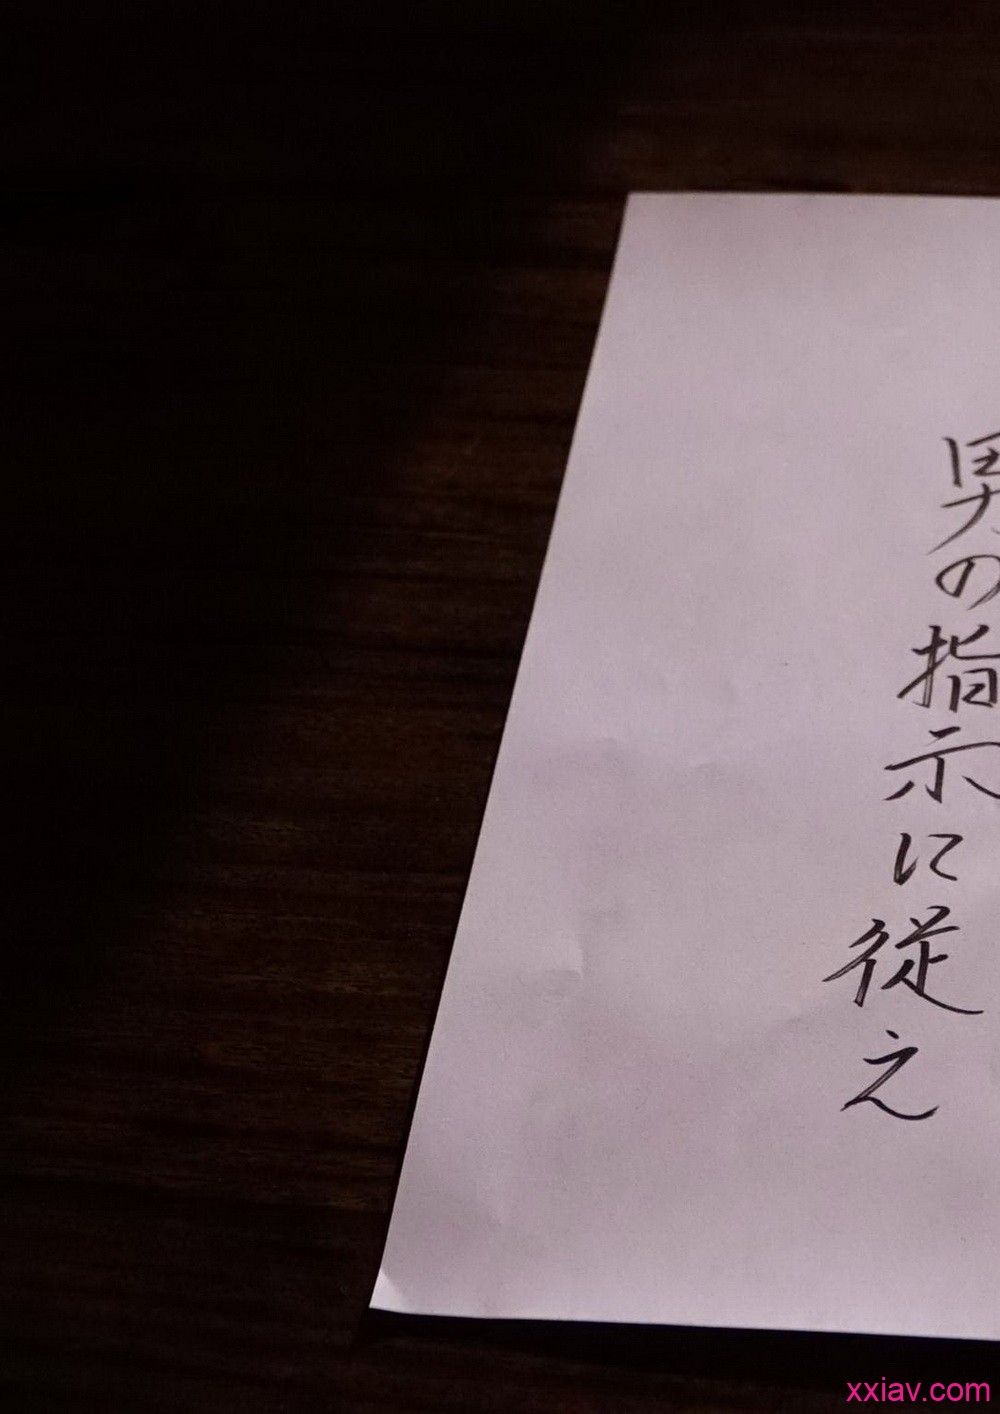 男の指示に従え
xxiav.com